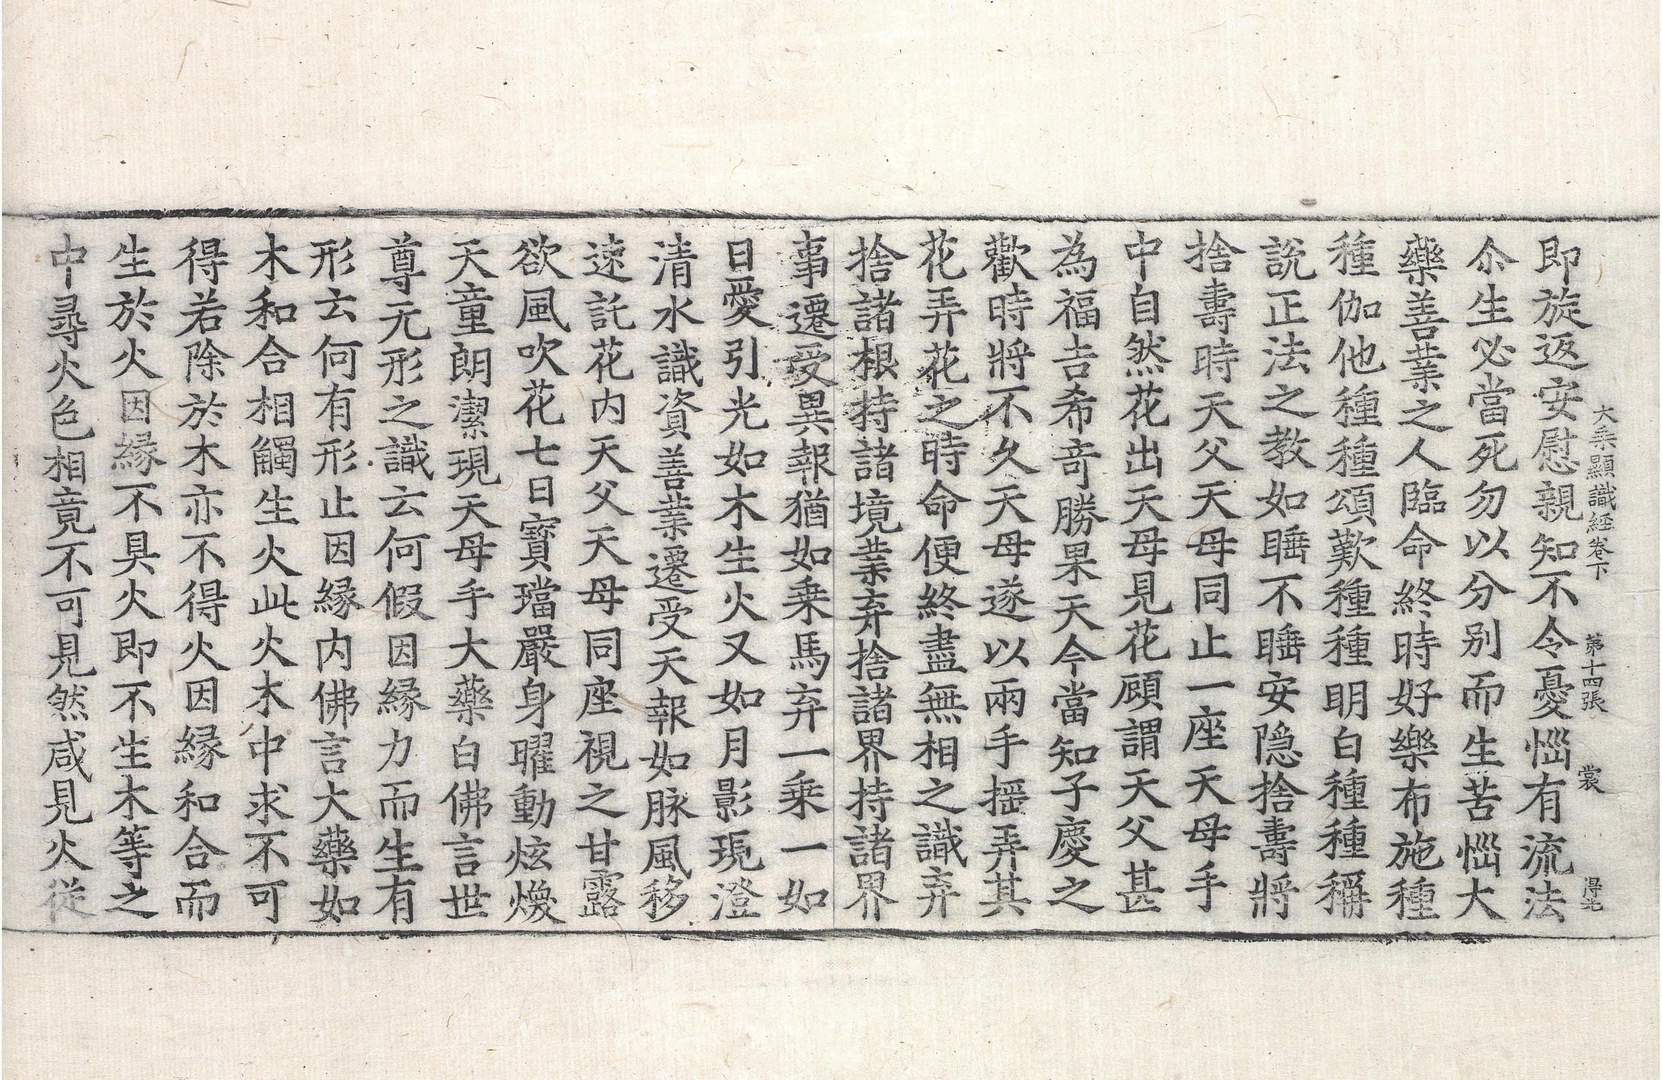 大乘顯識經卷下　第十四張　裳
即旋返安慰親知不令憂惱有流法
尒生必當死勿以分別而生苦惱大
藥善業之人臨命終時好樂布施種
種伽他種種頌歎種種明白種種稱
說正法之教如睡不睡安隱捨壽將
捨壽時天父天母同止一座天母手
中自然花出天母見花顧謂天父甚
為福吉希奇勝果天今當知子慶之
歡時將不久天母遂以兩手搖弄其
花弄花之時命便終盡無相之識弃
捨諸根持諸境業弃捨諸界持諸界
事遷受異報猶如乗馬弃一乗一如
日愛引光如木生火又如月影現澄
清水識資善業遷受天報如脉風移
速託花內天父天母同座視之甘露
欲風吹花七日寶璫嚴身曜動炫煥
天童朗潔現天母手大藥白佛言世
尊元形之識云何假因緣力而生有
形云何有形止因緣內佛言大藥如
木和合相觸生火此火木中求不可
得若除於木亦不得火因緣和合而
生於火因緣不具火即不生木等之
中尋火色相竟不可見然咸見火從